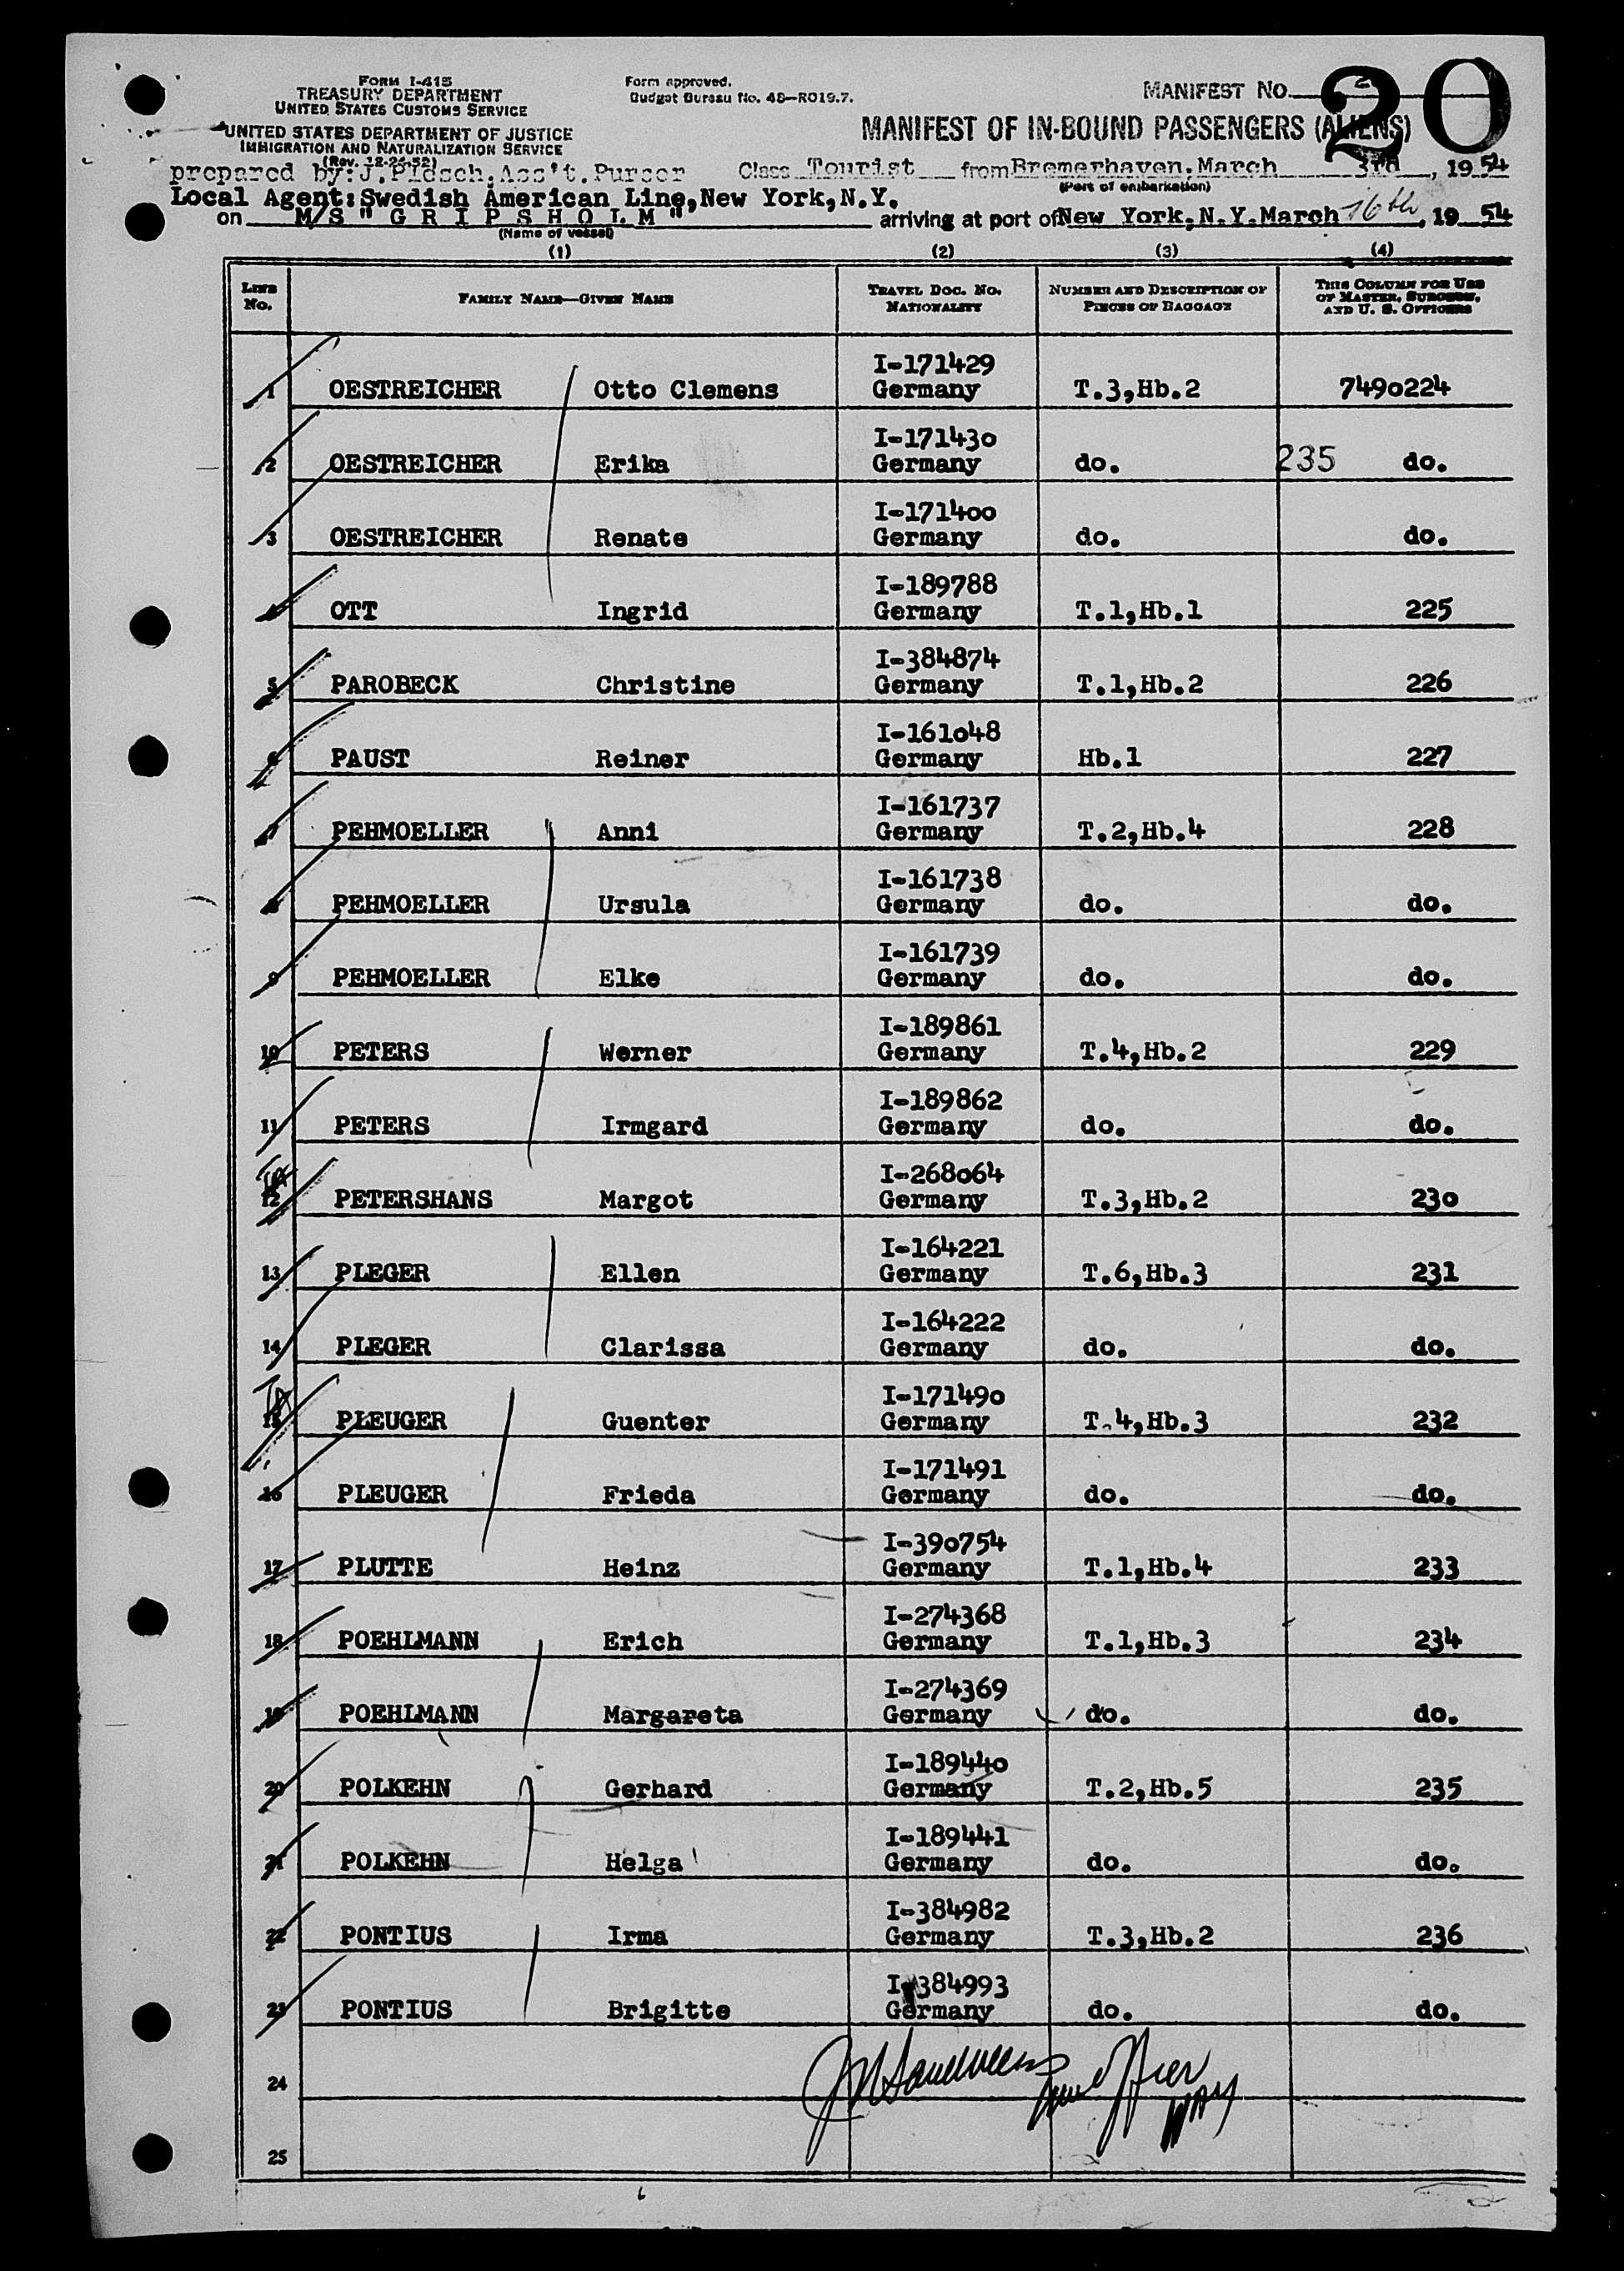 FORM I-415
TREASURY DEPARTMENT
UNITED STATES CUSTOMS SERVICE
UNITED STATES DEPARTMENT OF JUSTICE
IMMIGRATION AND NATURALIZATION SERVICE
(Rev. 12-24-52)
Form approved.
Budget Bureau No. 43-R019.7.
MANIFEST NO. 2
20
MANIFEST OF IN-BOUND PASSENGERS (ALIENS)
prepared by: J. Ass't. Purser Class Tourist from Bremerhaven, March 3rd, 1954
(Port of embarkation)
Local Agent: Swedish American Line, New York, N.Y.
on M/S "G R I P S H O L M" arriving at port of New York, N.Y. March 16th, 1954
(Name of vessel)
(1) (2) (3) (4)
LINE No. FAMILY NAME—GIVEN NAME TRAVEL DOC. NO. NATIONALITY NUMBER AND DESCRIPTION OF PIECES OF BAGGAGE THIS COLUMN FOR USE OF MASTER, SURGEON, AND U. S. OFFICERS
I-171429
1 OESTREICHER Otto Clemens Germany T.3,Hb.2 7490224
I-171430
2 OESTREICHER Erika Germany do. 235 do.
I-171400
3 OESTREICHER Renate Germany do. do.
I-189788
4 OTT Ingrid Germany T.1,Hb.1 225
I-384874
5 PAROBECK Christine Germany T.1,Hb.2 226
I-161048
6 PAUST Reiner Germany Hb.1 227
I-161737
7 PEHMOELLER Anni Germany T.2,Hb.4 228
I-161738
8 PEHMOELLER Ursula Germany do. do.
I-161739
9 PEHMOELLER Elke Germany do. do.
I-189861
10 PETERS Werner Germany T.4,Hb.2 229
I-189862
11 PETERS Irmgard Germany do. do.
I-268064
12 PETERSHANS Margot Germany T.3,Hb.2 230
I-164221
13 PLEGER Ellen Germany T.6,Hb.3 231
I-164222
14 PLEGER Clarissa Germany do. do.
I-171490
15 PLEUGER Guenter Germany T.4,Hb.3 232
I-171491
16 PLEUGER Frieda Germany do. do.
I-390754
17 PLUTTE Heinz Germany T.1,Hb.4 233
I-274368
18 POEHLMANN Erich Germany T.1,Hb.3 234
I-274369
19 POEHLMANN Margareta Germany do. do.
I-189440
20 POLKEHN Gerhard Germany T.2,Hb.5 235
I-189441
21 POLKEHN Helga Germany do. do.
I-384982
22 PONTIUS Irma Germany T.3,Hb.2 236
I-384993
23 PONTIUS Brigitte Germany do. do.
24
25